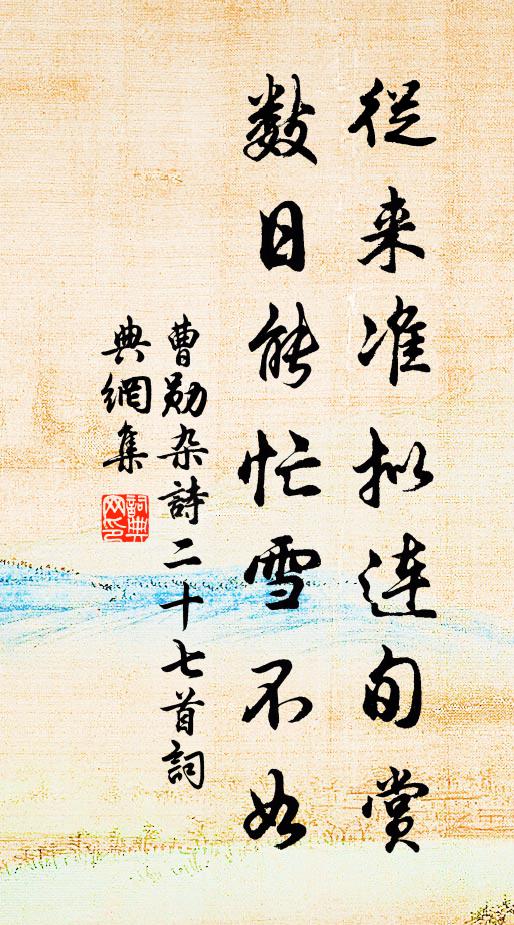 從来准拟连旬赏
数日能忙雪不如
曹勋杂詩二十七首詞
典網集
詞典
网印